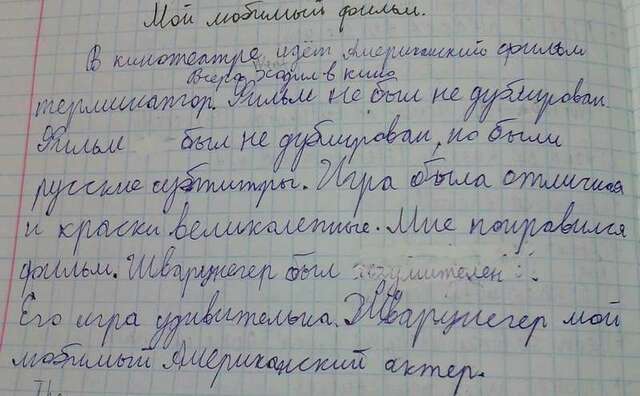 Мой любимый фильм.
В кинотеатре идёт Американский фильм
Вчера Ходил в кино
терминатор. Фильм не был не дублирован
Фильм был не дублирован, но были
русские субтитры. Игра была отличная
и краски великолепные. Мне понравился
фильм. Шварцнегер был
Его игра удивительна. Шварцнегер мой
любимый Американский актер.